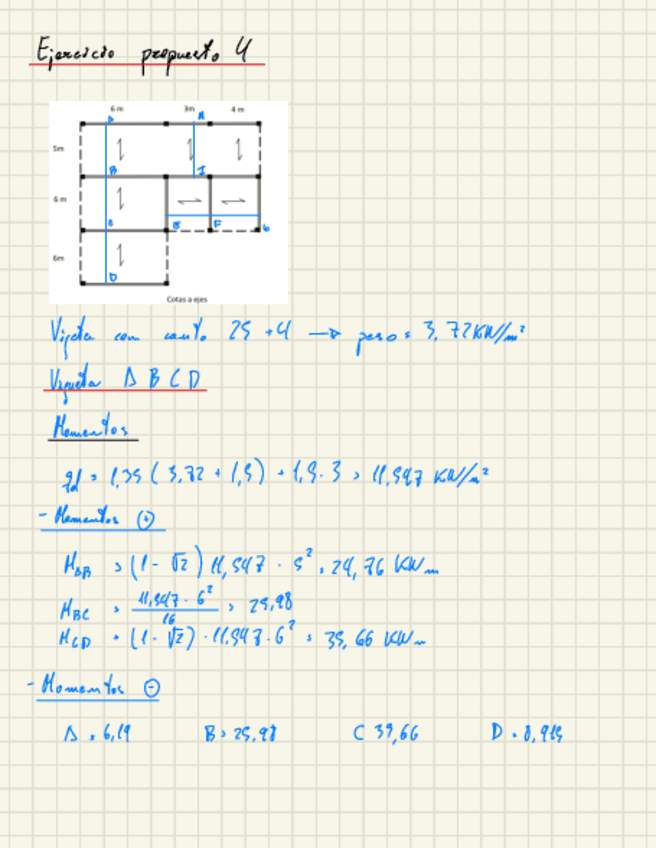 Ejercicio propuesto 4
6 m 3m 4 m
D A
5m
B I
6 m
E F G
6m
D
Cotas a ejes
Vigueta con canto 25 + 4 → peso = 3,72 KN/m²
Vigueta A B C D
Momentos
qd = 1,35 ( 3,72 + 1,5 ) + 1,5 · 3 = 11,547 KN/m²
- Momentos ⊕
M_AB = (1 - √2) 11,547 · 5² = 24,76 KNm
M_BC = 11,547 · 6² / 16 = 25,98
M_CD = (1 - √2) · 11,547 · 6² = 35,66 KNm
- Momentos ⊖
A = 6,19 B = 25,98 C 35,66 D = 8,915